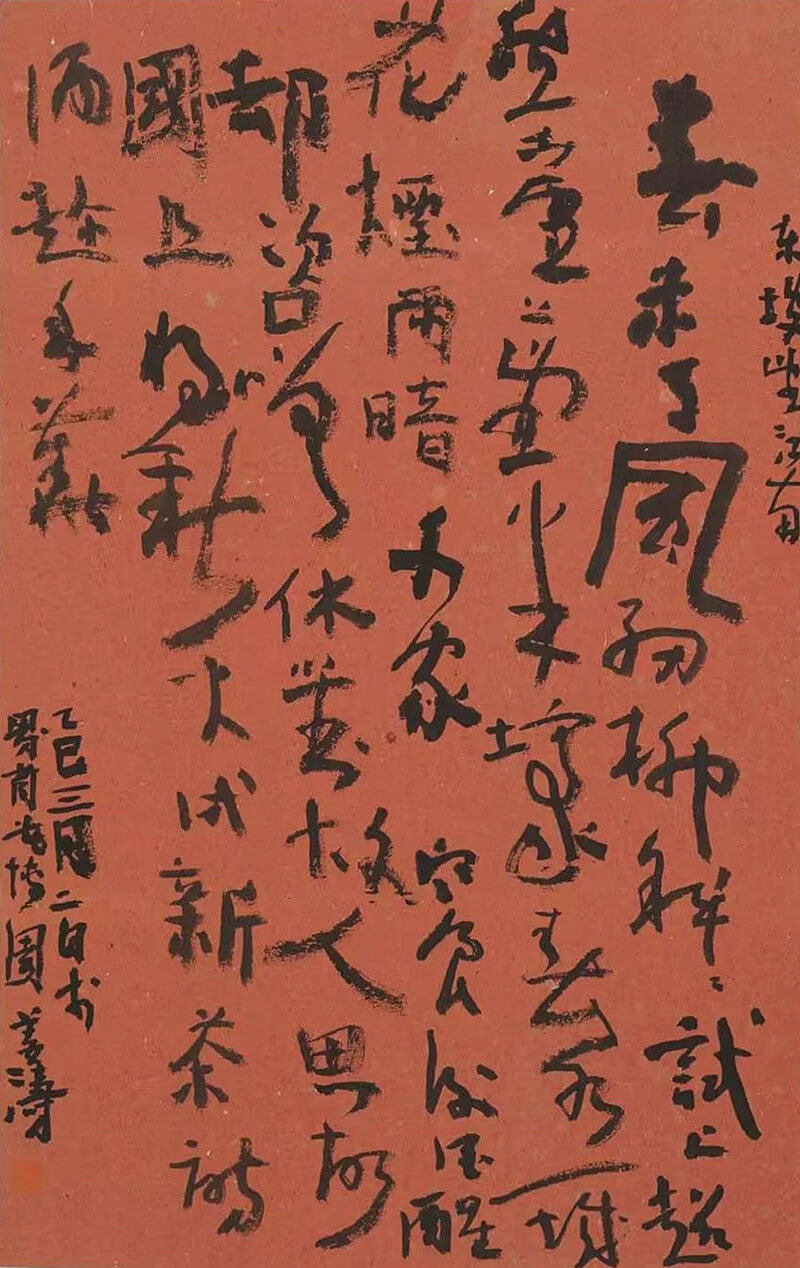 东坡望江南
春未老風細柳斜斜試上超
然臺上看半壕春水一城
花煙雨暗千家寒食後酒醒
却咨嗟休對故人思故
國且將新火試新茶詩
酒趁年華
乙巳三月二日书
園